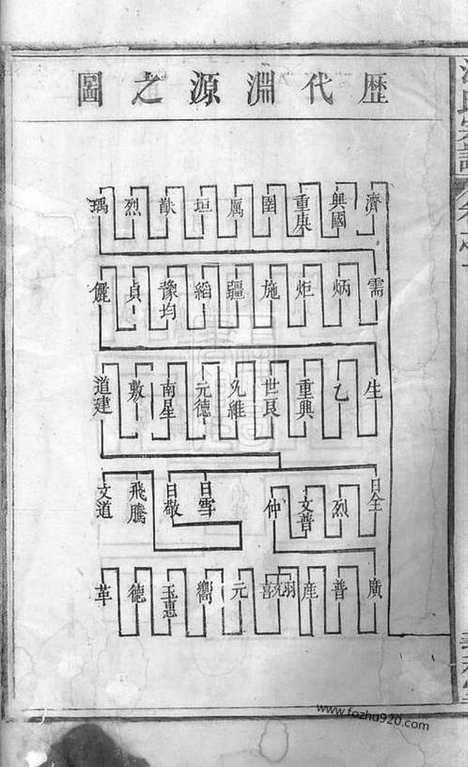 歷代淵源之圖
濟 興國 重庚 圉 厲 垣 猷 烈 瑀
需 炳 炬 施 疆 縚 豫均 貞 儷
生 乙 重興 世良 允維 元德 南星 敷 道建
日全 烈 文普 仲 日雪 日敬 飛騰 文道
廣 普 產 喜 元 嚮 玉惠 德 革
www.fozhu920.com